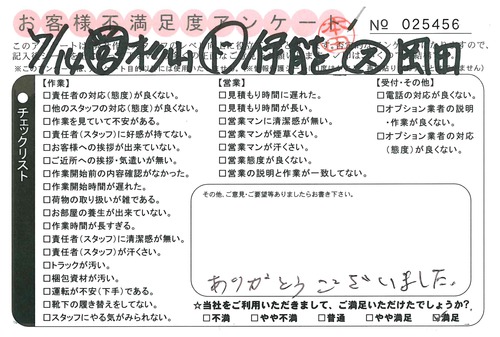 お客様不満足度アンケート
No 025456
7/14 松山 伊熊 岡田
チェックリスト
【作業】
□責任者の対応(態度)が良くない。
□他のスタッフの対応(態度)が良くない。
□作業を見ていて不安がある。
□責任者(スタッフ)に好感が持てない。
□お客様への挨拶が出来ていない。
□ご近所への挨拶・気遣いが無い。
□作業開始前の内容確認がなかった。
□作業開始時間が遅れた。
□荷物の取り扱いが雑である。
□お部屋の養生が出来ていない。
□作業時間が長すぎる。
□責任者(スタッフ)に清潔感が無い。
□責任者(スタッフ)が汗くさい。
□トラックが汚い。
□梱包資材が汚い。
□運転が不安(下手)である。
□靴下の履き替えをしてない。
□スタッフにやる気がみられない。
【営業】
□見積もり時間に遅れた。
□見積もり時間が長い。
□営業マンに清潔感が無い。
□営業マンが煙草くさい。
□営業マンが汗くさい。
□営業態度が良くない。
□営業の説明と作業が一致してない。
【受付・その他】
□電話の対応が良くない。
□オプション業者の説明
・作業が良くない。
□オプション業者の対応
(態度)が良くない。
その他、ご意見・ご要望等ありましたらお書き下さい。
ありがとうございました。
☆当社をご利用いただきまして、ご満足いただけたでしょうか?
□不満 □やや不満 □普通 □やや満足 ☑満足